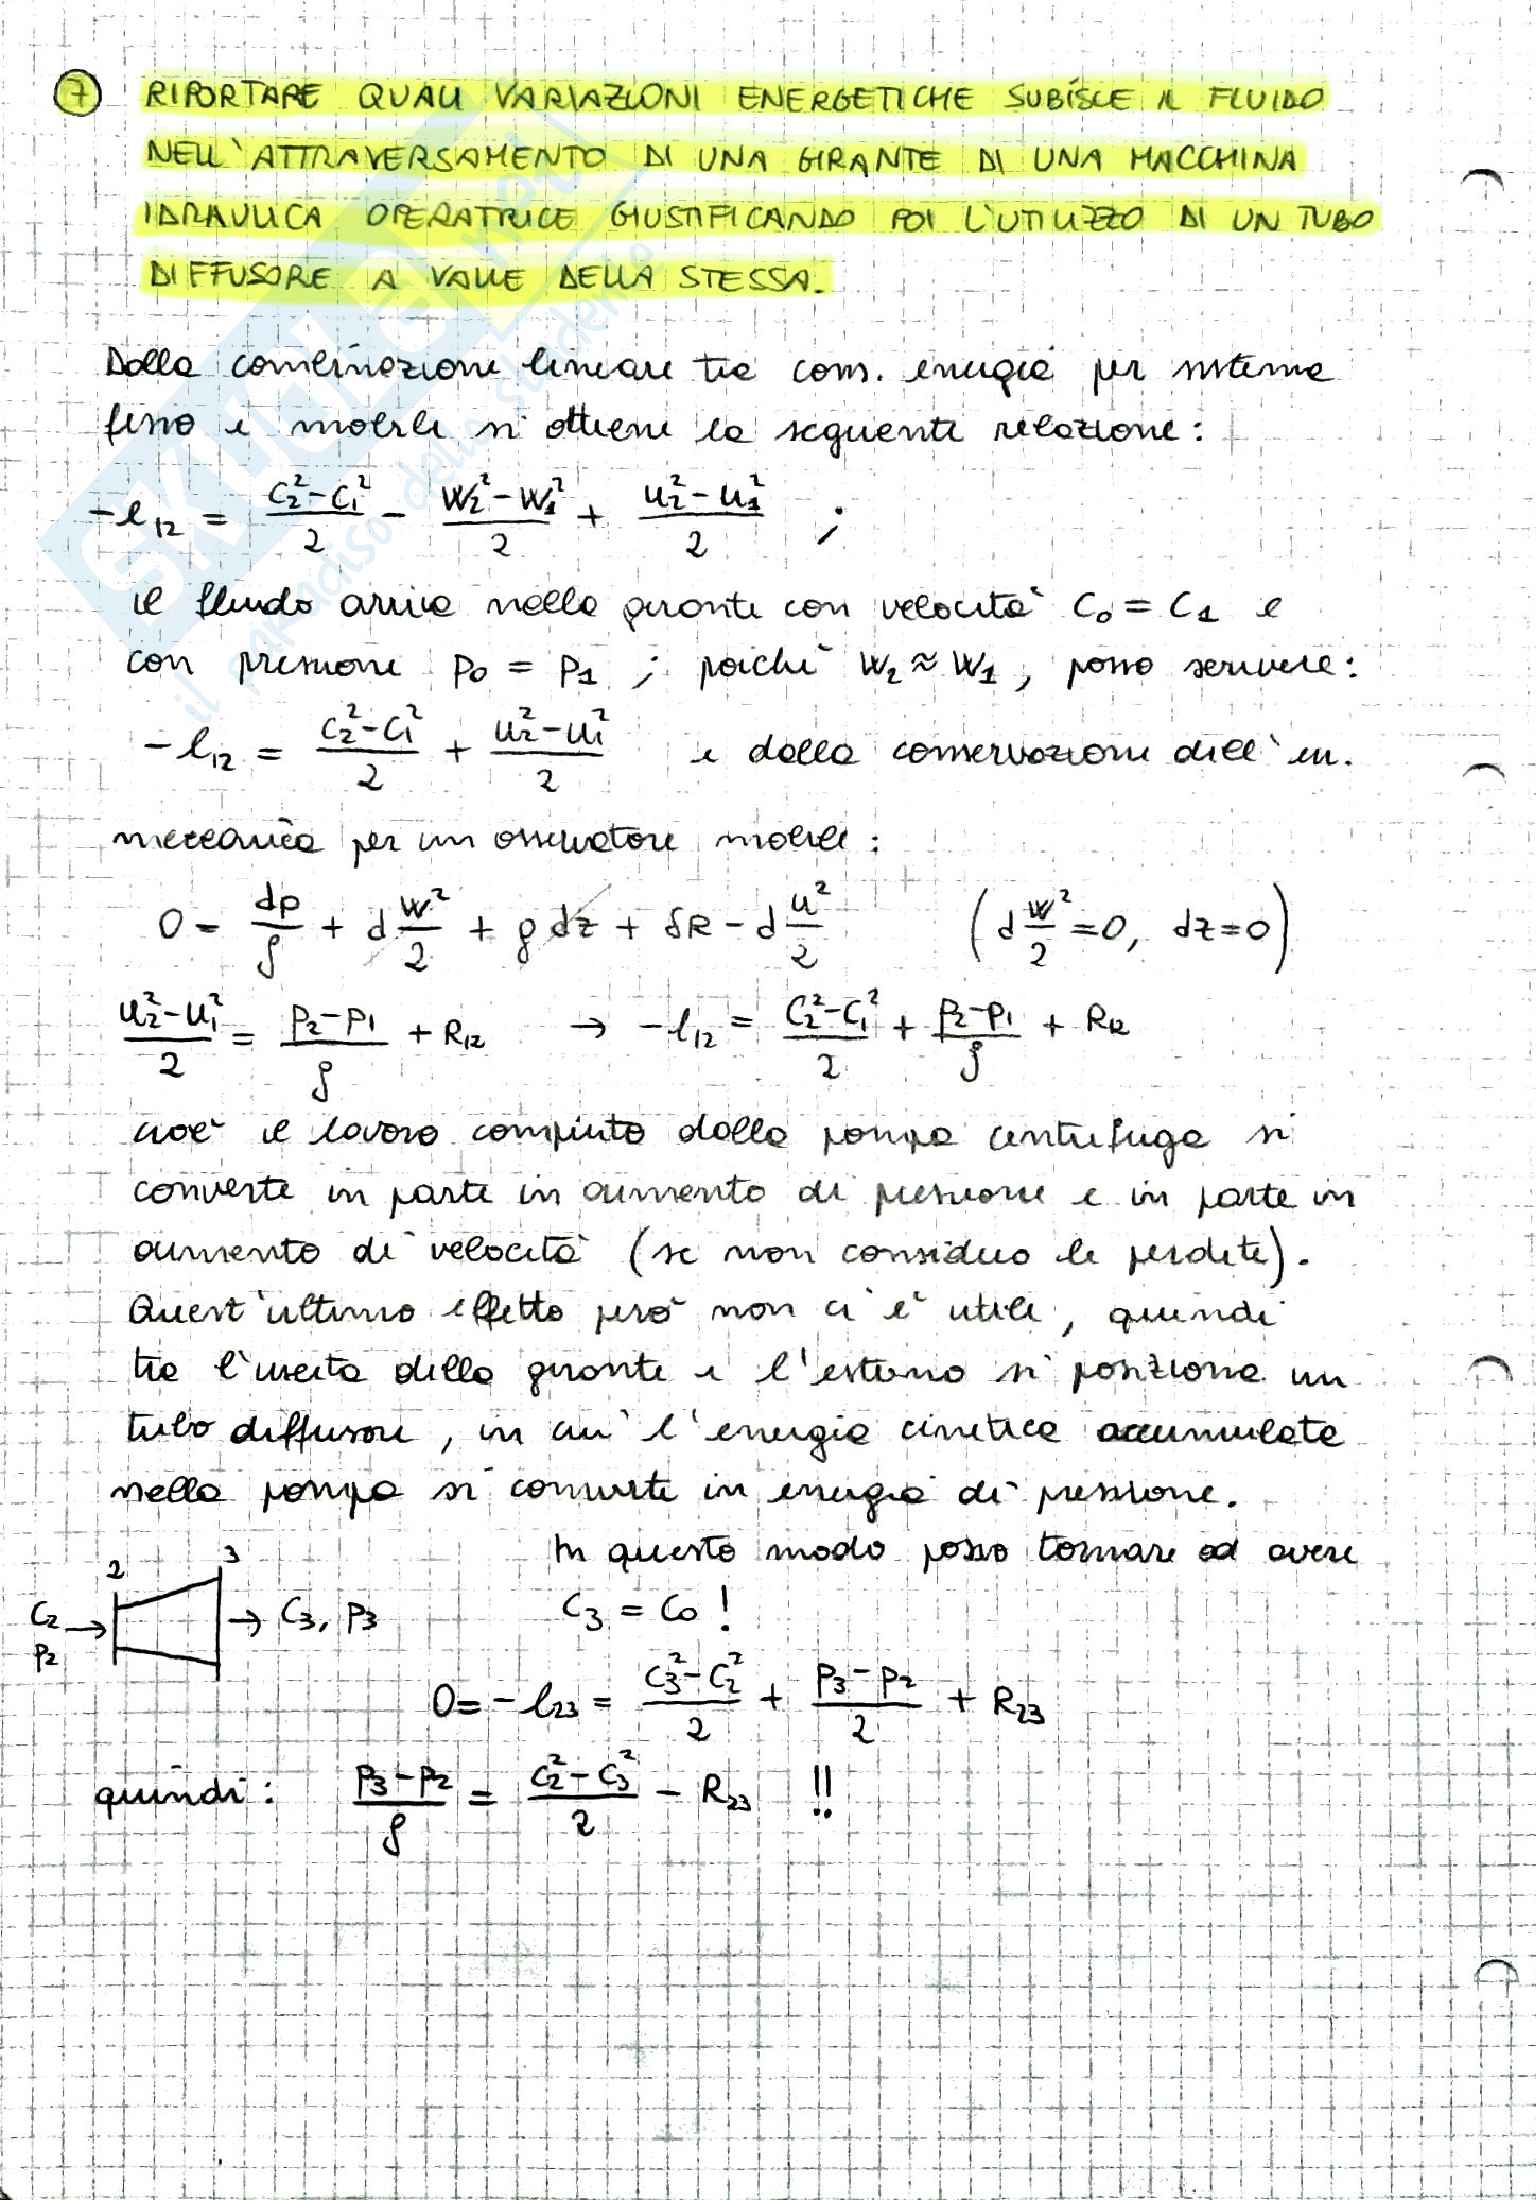 7 RIPORTARE QUALI VARIAZIONI ENERGETICHE SUBISCE IL FLUIDO
NELL'ATTRAVERSAMENTO DI UNA GIRANTE DI UNA MACCHINA
IDRAULICA OPERATRICE GIUSTIFICANDO POI L'UTILIZZO DI UN TUBO
DIFFUSORE A VALLE DELLA STESSA.
Dalla combinazione lineare tra cons. energia per sistema
fisso e mobile si ottiene la seguente relazione:
-l₁₂ = (c₂²-c₁²)/2 - (w₂²-w₁²)/2 + (u₂²-u₁²)/2 ;
il fluido arriva nella girante con velocità c₀ = c₁ e
con pressione p₀ = p₁ ; poiché w₂ ≈ w₁, posso scrivere:
-l₁₂ = (c₂²-c₁²)/2 + (u₂²-u₁²)/2 e dalla conservazione dell'en.
meccanica per un osservatore mobile:
0 = dp/ρ + d w²/2 + g dz + δR - d u²/2 (d w²/2 = 0, dz = 0)
(u₂²-u₁²)/2 = (p₂-p₁)/ρ + R₁₂ → -l₁₂ = (c₂²-c₁²)/2 + (p₂-p₁)/ρ + R₁₂
cioè il lavoro compiuto dalla pompa centrifuga si
converte in parte in aumento di pressione e in parte in
aumento di velocità (se non considero le perdite).
Quest'ultimo effetto però non ci è utile, quindi
tra l'uscita della girante e l'esterno si posiziona un
tubo diffusore, in cui l'energia cinetica accumulata
nella pompa si converte in energia di pressione.
In questo modo posso tornare ad avere
c₃ = c₀ !
2 3
c₂ p₂ → → c₃, p₃
0 = -l₂₃ = (c₃²-c₂²)/2 + (p₃-p₂)/2 + R₂₃
quindi: (p₃-p₂)/ρ = (c₂²-c₃²)/2 - R₂₃ !!
SKUOLA.net
il paradiso dello studente